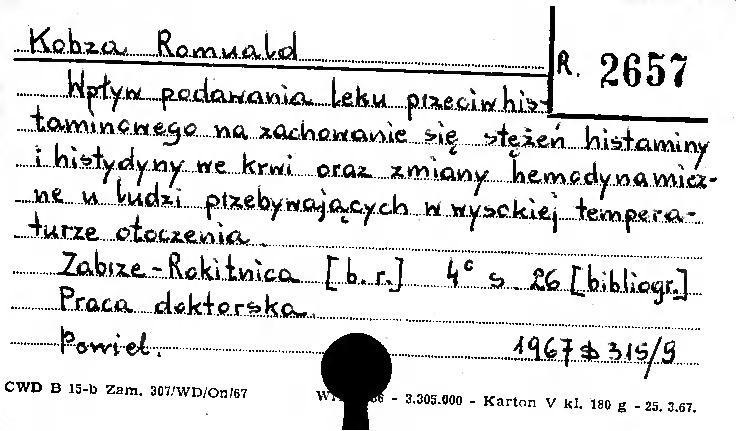 Kobza Romuald
R. 2657
Wpływ podawania leku przeciwhis-
taminowego na zachowanie się stężeń histaminy
i histydyny we krwi oraz zmiany hemodynamicz-
ne u ludzi przebywających w wysokiej tempera-
turze otoczenia.
Zabrze-Rokitnica [b.r.] 4° s. 26 [bibliogr.]
Praca doktorska.
Powiel.
1967 D 315/9
CWD B 15-b Zam. 307/WD/On/67
- 3.305.000 - Karton V kl. 180 g - 25.3.67.